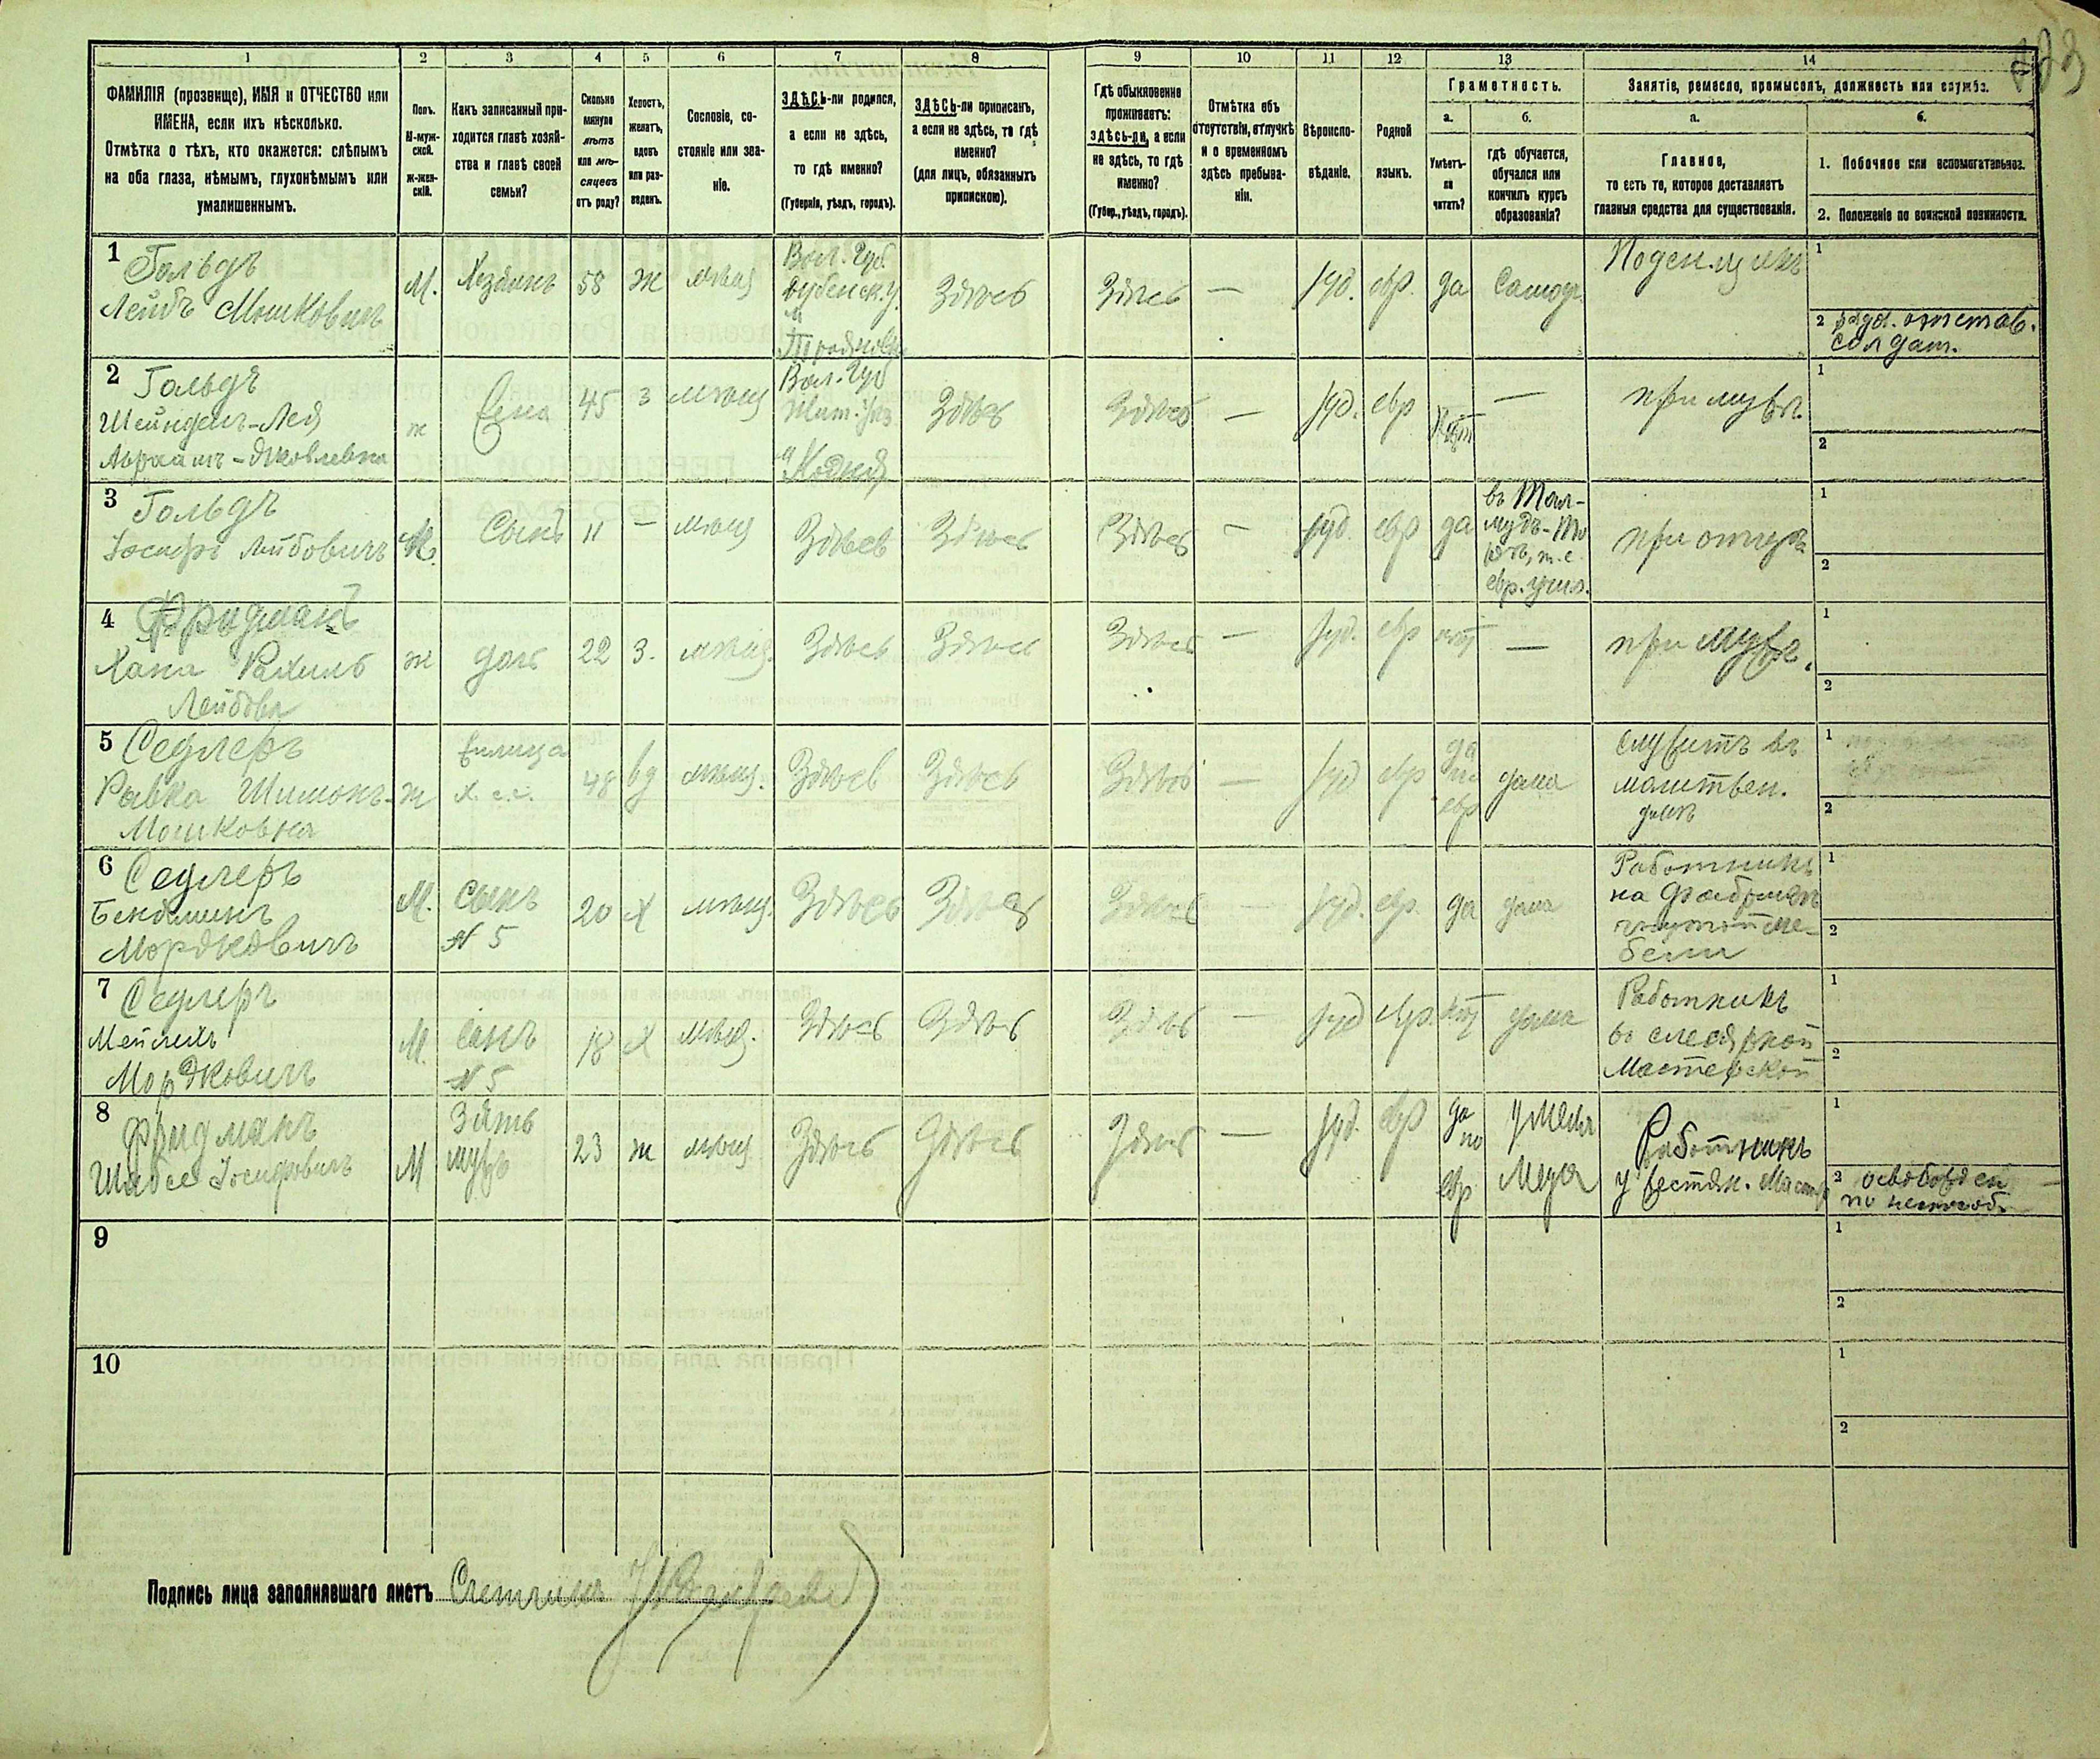 1 2 3 4 5 6 7 8 9 10 11 12 13 14
ФАМИЛІЯ (прозвище), ИМЯ и ОТЧЕСТВО или
ИМЕНА, если ихъ нѣсколько.
Отмѣтка о тѣхъ, кто окажется: слѣпымъ
на оба глаза, нѣмымъ, глухонѣмымъ или
умалишеннымъ.
Полъ.
М-муж-
ской.
ж-жен-
скій.
Какъ записанный при-
ходится главѣ хозяй-
ства и главѣ своей
семьи?
Сколько
минуло
лѣтъ
или мѣ-
сяцевъ
отъ роду?
Холостъ,
женатъ,
вдовъ
или раз-
веденъ.
Сословіе, со-
стояніе или зва-
ніе.
ЗДѢСЬ-ли родился,
а если не здѣсь,
то гдѣ именно?
(Губернія, уѣздъ, городъ).
ЗДѢСЬ-ли приписанъ,
а если не здѣсь, то гдѣ
именно?
(для лицъ, обязанныхъ
припискою).
Гдѣ обыкновенно
проживаетъ:
здѣсь-ли, а если
не здѣсь, то гдѣ
именно?
(Губер., уѣздъ, городъ).
Отмѣтка объ
отсутствіи, отлучкѣ
и о временномъ
здѣсь пребыва-
ніи.
Вѣроиспо-
вѣданіе.
Родной
языкъ.
Грамотность.
а.
Умѣетъ-
ли
читать?
б.
гдѣ обучается,
обучался или
кончилъ курсъ
образованія?
Занятіе, ремесло, промыселъ, должность или служба.
а.
Главное,
то есть то, которое доставляетъ
главныя средства для существованія.
б.
1. Побочное или вспомогательное.
2. Положеніе по воинской повинности.
1
Гольдъ
Лейбъ Мошковичъ
М.
Хозяинъ
58
ж
мѣщ
Вол. Губ.
Дубенск. у.
м
Здѣсь
Здѣсь
—
Іуд.
евр.
да
Самоуч.
Поденщикъ
1
2 отстав.
солдат.
2
Гольдъ
Шейндель-Лея
Абрамъ-Яковлевна
ж
Жена
45
з
мѣщ
Вол. Губ
Жит. уѣз
м Кодня
Здѣсь
Здѣсь
—
Іуд.
евр
нѣт
—
при мужѣ
1
2
3
Гольдъ
Іосифъ Лейбовичъ
М.
Сынъ
11
—
мѣщ
Здѣсь
Здѣсь
Здѣсь
—
Іуд.
евр
да
въ Тал-
мудъ-То
рѣ, т.е.
евр. учил.
при отцѣ
1
2
4
Фридманъ
Хана Рахиль
Лейбова
ж
дочь
22
з.
мѣщ.
Здѣсь
Здѣсь
Здѣсь
—
Іуд.
евр
нѣт
—
при мужѣ.
1
2
5
Седлеръ
Ривка Шимонъ-
Мошковна
ж
Жилица
48
вд
мѣщ.
Здѣсь
Здѣсь
Здѣсь
—
Іуд
евр
да
по
евр
дома
служитъ въ
молитвен.
домѣ
1
2
6
Седлеръ
Беньяминъ
Мордковичъ
М.
Сынъ
N 5
20
Х
мѣщ.
Здѣсь
Здѣсь
Здѣсь
—
Іуд.
евр.
да
дома
Работникъ
на фабрикѣ
гнутой ме-
бели
1
2
7
Седлеръ
Мейлихъ
Мордковичъ
М.
Сынъ
N 5
18
Х
мѣщ.
Здѣсь
Здѣсь
Здѣсь
—
Іуд
евр.
нѣт
дома
Работникъ
въ слесарной
Мастерской
1
2
8
Фридманъ
Шабсе Іосифовичъ
М
Зять
мужъ
23
ж
мѣщ
Здѣсь
Здѣсь
Здѣсь
—
Іуд.
евр
да
по
евр
у Мела
меда
Работникъ
у жестян. Мастер
1
2 освобожден
по неспособ.
9
1
2
10
1
2
Подпись лица заполнявшаго листъ Счетчикъ